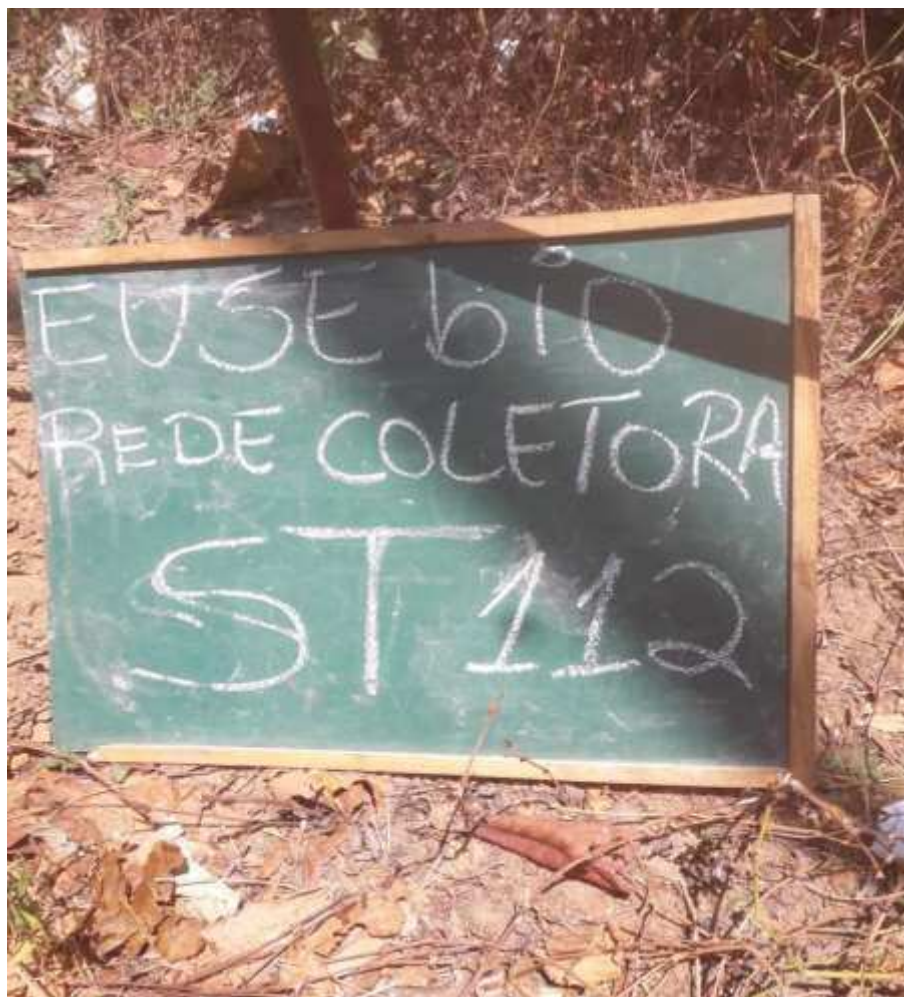 EUSEbiO
REDE COLETORA
ST 112